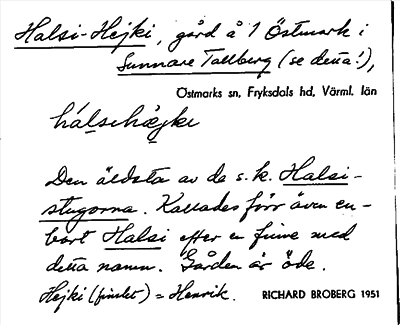 Halsi-Hejki, gård å 1 Östmark i
Sunnare Tallberg (se detta!),
Östmarks sn, Fryksdals hd, Värml. län
hálsihæ̀jki
Den äldsta av de s.k. Halsi-
stugorna. Kallades förr även en-
bart Halsi efter en finne med
detta namn. Gården är öde.
Hejki (finelet) = Henrik. RICHARD BROBERG 1951